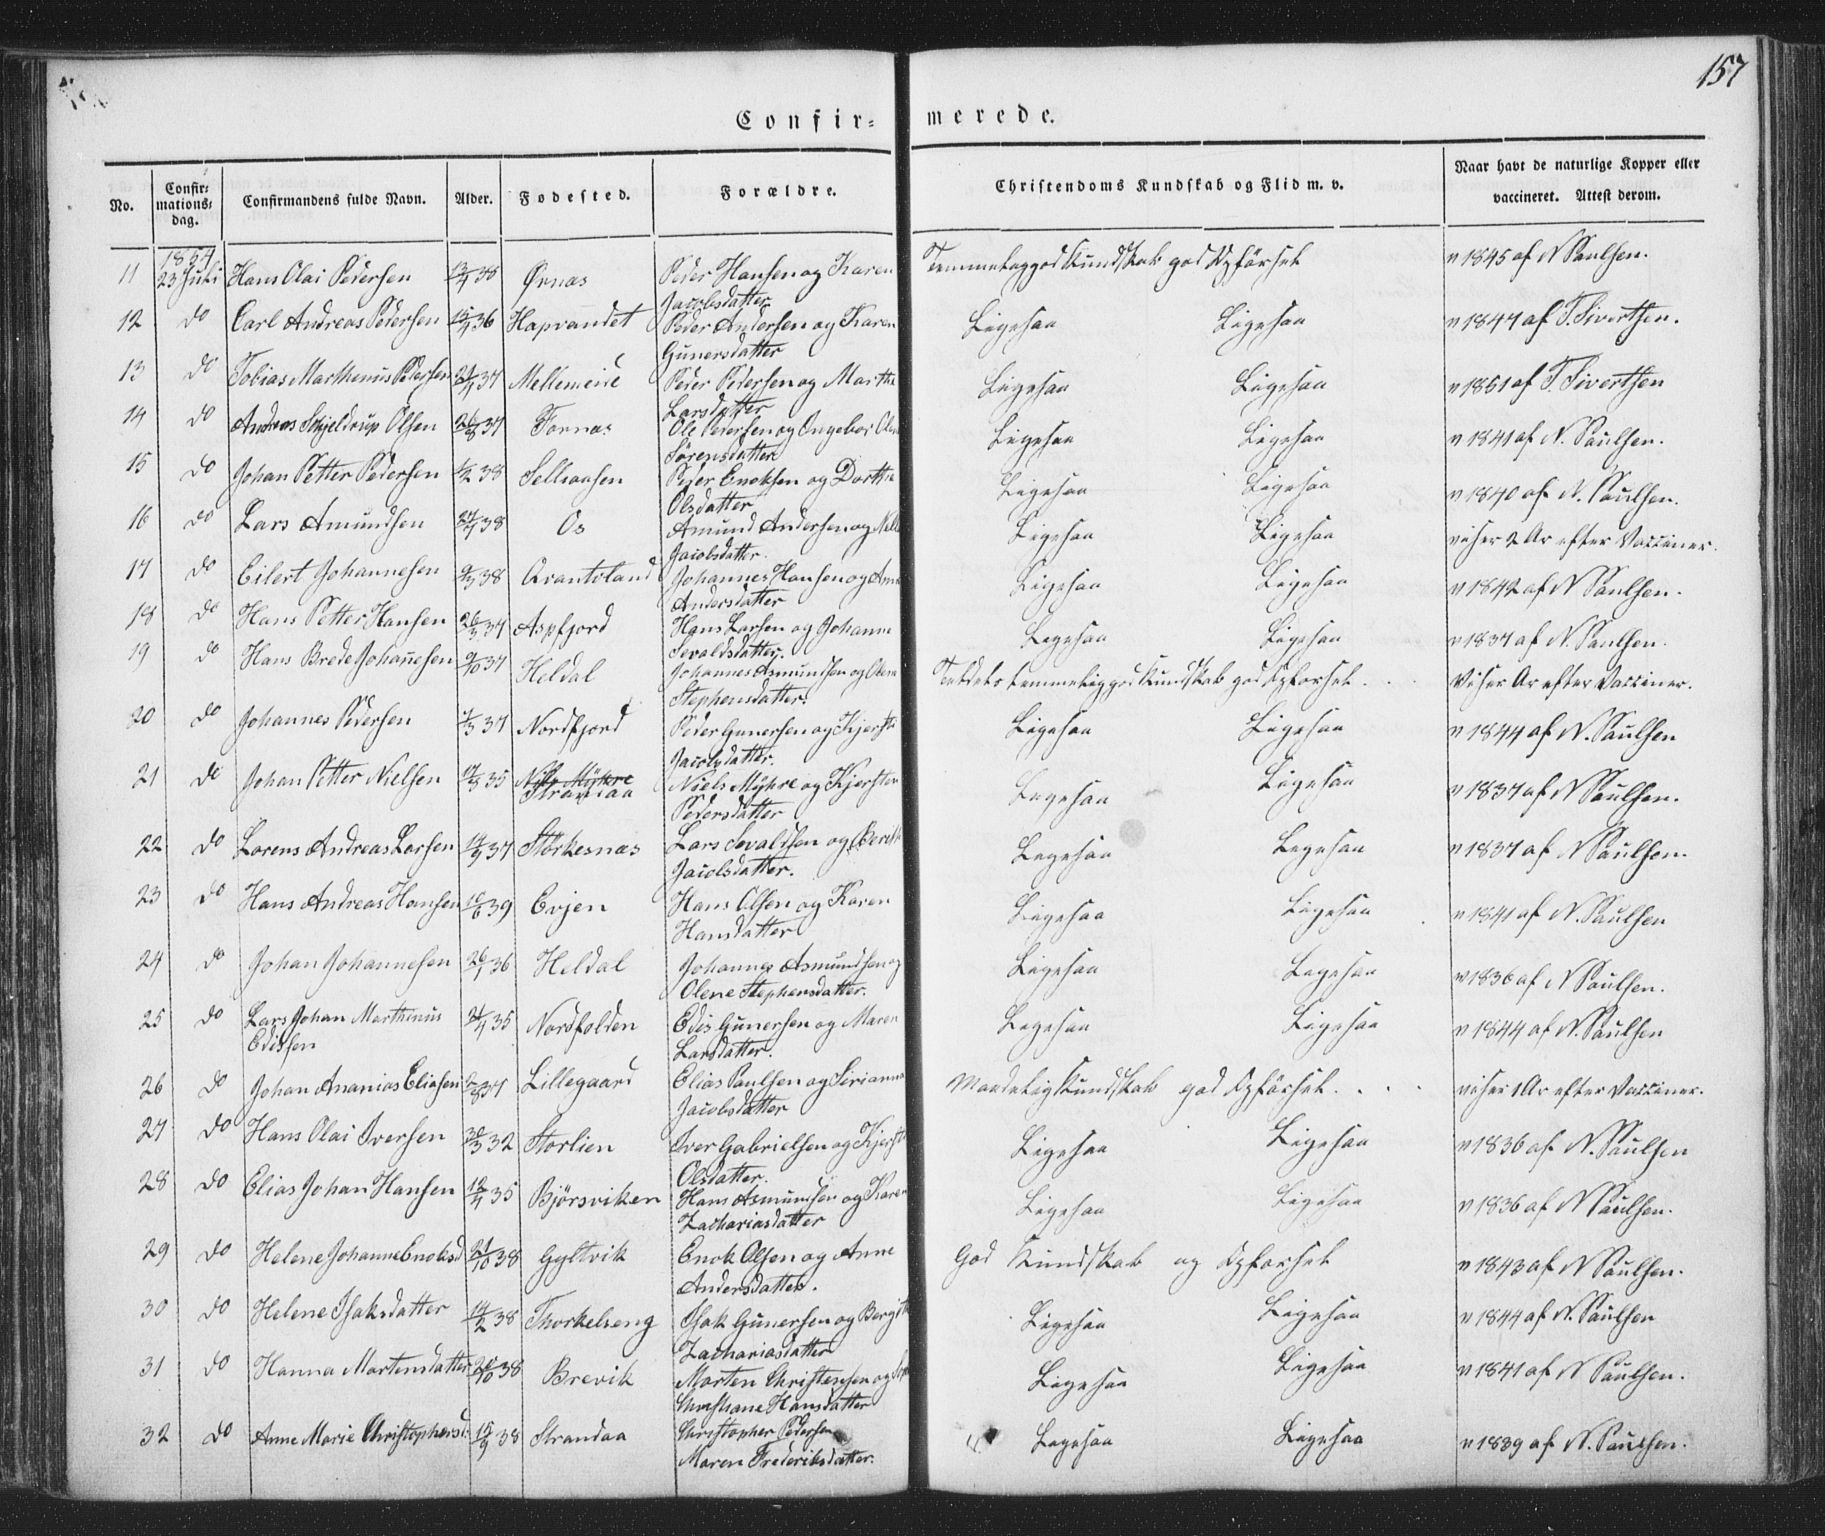 157
Confir- merede.
No. Confir- mations- dag. Confirmandens fulde Navn. Alder. Fodested. Forældre. Christendoms Kundskab og Flid m. v. Naar havt de naturlige Kopper eller vaccineret. Attest derom.
1854
11 23 Juli Hans Olai Pedersen 38 Ørnæs Peder Hansen og Karen Temmelig god Kundskab god Opførsel v 1845 af N Paulsen.
Jacobsdatter
12 do Carl Andreas Pedersen 36 Hapvandet Peder Andersen og Karen Ligesaa Ligesaa v 1847 af T. Sivertsen.
Gunersdatter
13 do Tobias Marthenius Pedersen 37 Mellemeide Peder Pedersen og Martha Ligesaa Ligesaa v 1851 af T. Sivertsen
Larsdatter
14 do Andreas Schjeldrup Olsen 37 Fornæs Ole Pedersen og Ingebor Ligesaa Ligesaa v 1841 af N. Paulsen.
Sörensdatter
15 do Johan Petter Pedersen 38 Peder Enoksen og Dorthe Ligesaa Ligesaa v 1840 af N. Paulsen.
Olsdatter
16 do Lars Amundsen 38 Os Amund Andersen og Ligesaa Ligesaa viser 2 Ar efter Vacciner.
Jacobsdatter.
17 do Eilert Johannesen 9/3 38 Qvantoland Johannes Hansen og Ligesaa Ligesaa v 1842 af N Paulsen.
Andersdatter
18 do Hans Petter Hansen 26/3 37 Aspfjord Hans Larsen og Johanne Ligesaa Ligesaa v 1837 af N. Paulsen.
Sevaldsdatter.
19 do Hans Brede Johannesen 37 Heldal Johannes Asmundsen og Olene temmelig god Kundskab god Opførsel . . . Viser Ar efter Vacciner.
Stephensdatter.
20 do Johannes Pedersen 37 Nordfjord Peder Gunersen og Ligesaa Ligesaa v 1844 af N. Paulsen
Jacobsdatter.
21 do Johan Petter Nielsen 35 Niels Myhre Niels Myhre og Kjersten Ligesaa Ligesaa v 1837 af N Paulsen.
Strandaa Pedersdatter
22 do Lorens Andreas Larsen 14/9 37 Störkesnæs Lars Sevaldsen og Berith Ligesaa Ligesaa v 1837 af N Paulsen.
Jacobsdatter.
23 do Hans Andreas Hansen 39 Evjen Hans Olsen og Karen Ligesaa Ligesaa v 1841 af N. Paulsen
Hansdatter
24 do Johan Johannesen 26/1 36 Heldal Johannes Asmundsen og Ligesaa Ligesaa v 1836 af N Paulsen.
Olene Stephensdatter.
25 do Lars Johan Marthinus 35 Nordfolden Edis Gunersen og Maren Ligesaa Ligesaa v 1844 af N. Paulsen
Edissen Larsdatter.
26 do Johan Ananias Eliasen 37 Lillegaard Elias Paulsen og Sirianna Maadelig Kundskab god Opførsel . . . viser 1 Ar efter Vacciner.
Jacobsdatter
27 do Hans Olai Iversen 30/3 32 Storlien Iver Gabrielsen og Ligesaa Ligesaa v 1836 af N. Paulsen
Olsdatter.
28 do Elias Johan Hansen 35 Bjørsviken Hans Asmundsen og Karen Ligesaa Ligesaa v 1836 af N Paulsen.
Zachariasdatter
29 do Helene Johanne Enoksd 21/10 38 Gyltvik Enok Olsen og Anne God Kundskab og Opførsel v 1843 af N Paulsen.
Andersdatter.
30 do Helene Isaksdatter 14/2 38 Thorkelseng Isak Gunersen og Ligesaa Ligesaa v 1844 af N. Paulsen
Zachariasdatter
31 do Hanna Mortensdatter 38 Brevik Morten Christensen og Ligesaa Ligesaa v 1841 af N Paulsen.
Christiane Hansdatter
32 do Anne Marie Christophersd. 15/9 38 Strandaa Christopher Pedersen Ligesaa Ligesaa v 1839 af N. Paulsen.
Maren Frederiksdatter.